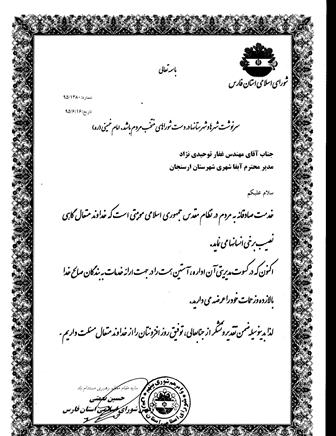 باسمه تعالی
شورای اسلامی استان فارس
شماره: ۹۵/۱۲۸۰
تاریخ: ۹۵/۶/۱۶
سرنوشت شهرها و شهرستانها در دست شوراهای منتخب مردم می باشد. امام خمینی (ره)
جناب آقای مهندس غفار توحیدی نژاد
مدیر محترم آبفا شهری شهرستان ارسنجان
سلام علیکم
خدمت صادقانه به مردم در نظام مقدس جمهوری اسلامی موهبتی است که خداوند متعال گاهی
نصیب برخی انسانها می نماید.
اکنون که در کسوت مدیریتی آن اداره، آستین همت را در جهت ارائه خدمات به بندگان صالح خدا
بالا زده و زحمات خود را عرضه می دارید.
لذا بدینوسیله ضمن تقدیر و تشکر از جنابعالی، توفیق روز افزونتان را از خداوند متعال مسئلت داریم.
حسین
شورای اسلامی استان فارس